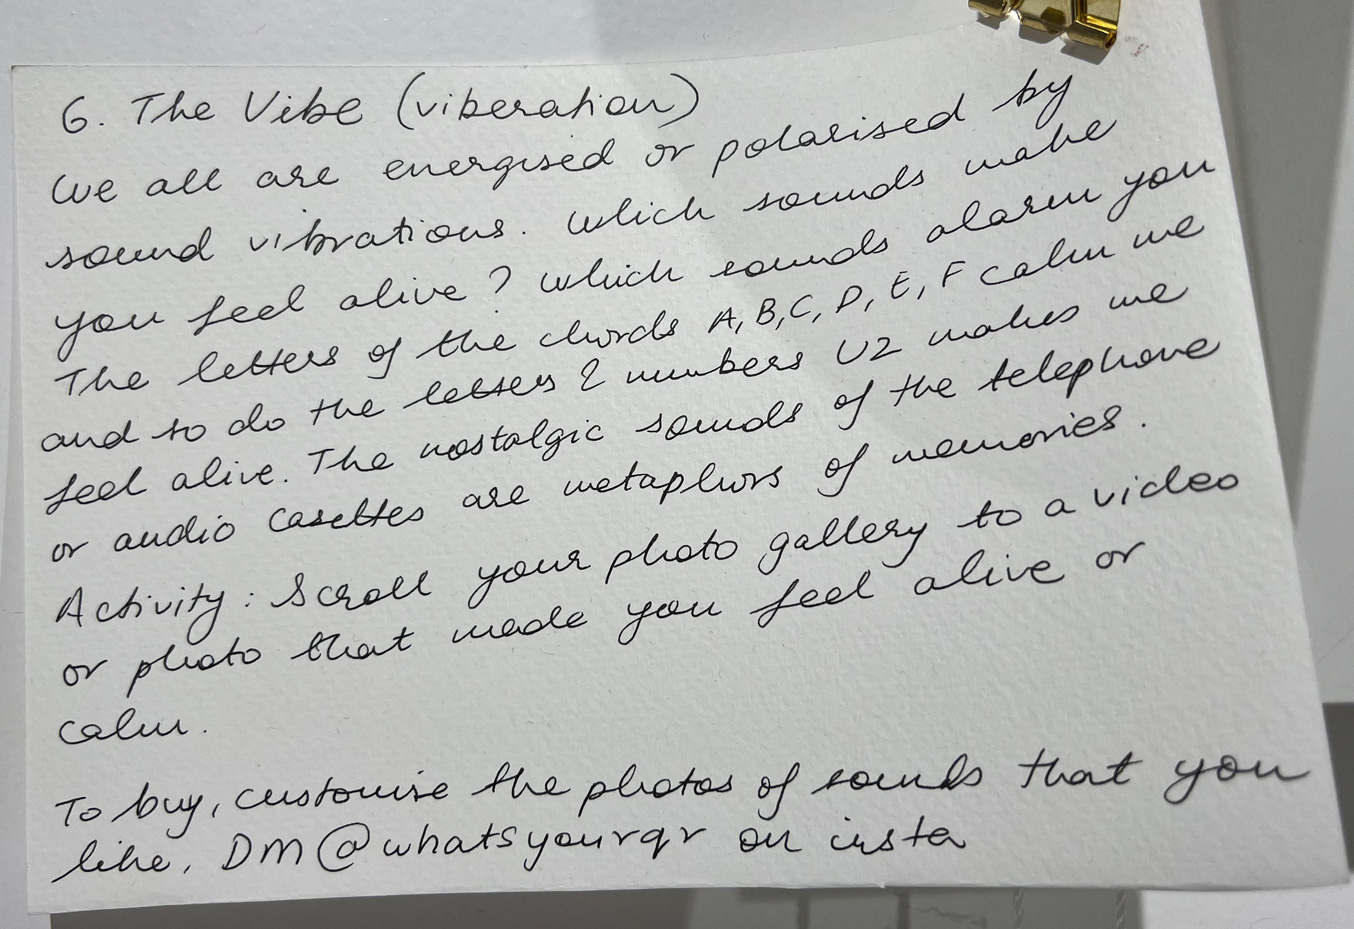 6. The Vibe (viberation)
We all are energised or polarised by
sound vibrations. Which sounds make
you feel alive? Which sounds alarm you
The letters of the chords A, B, C, D, E, F calm me
and to do the letters & numbers U2 makes me
feel alive. The nostalgic sounds of the telephone
or audio casettes are metaphors of memories.
Activity: Scroll your photo gallery to a video
or photo that made you feel alive or
calm.
To buy, customise the photos of sounds that you
like, DM @whatsyourqr on insta